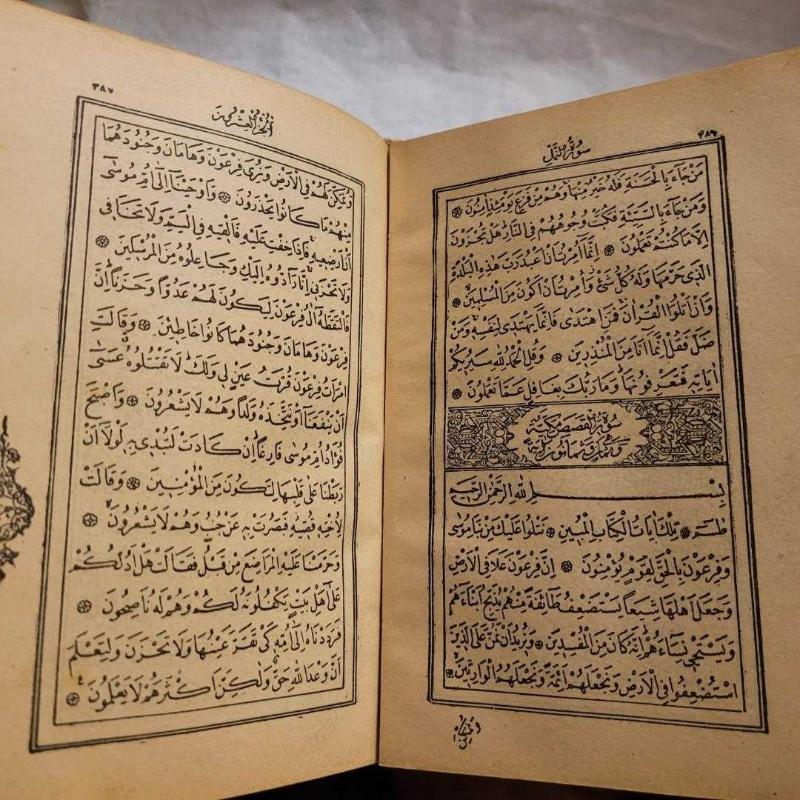 ٣٨٦
سورة النمل
مَنْ جَاءَ بِالْحَسَنَةِ فَلَهُ خَيْرٌ مِنْهَا وَهُمْ مِنْ فَزَعٍ يَوْمَئِذٍ اٰمِنُونَ
وَمَنْ جَاءَ بِالسَّيِّئَةِ فَكُبَّتْ وُجُوهُهُمْ فِى النَّارِ هَلْ تُجْزَوْنَ
اِلَّا مَا كُنْتُمْ تَعْمَلُونَ اِنَّمَا اُمِرْتُ اَنْ اَعْبُدَ رَبَّ هٰذِهِ الْبَلْدَةِ
الَّذِى حَرَّمَهَا وَلَهُ كُلُّ شَىْءٍ وَاُمِرْتُ اَنْ اَكُونَ مِنَ الْمُسْلِمِينَ
وَاَنْ اَتْلُوَا الْقُرْاٰنَ فَمَنِ اهْتَدٰى فَاِنَّمَا يَهْتَدِى لِنَفْسِهِ وَمَنْ
ضَلَّ فَقُلْ اِنَّمَا اَنَا مِنَ الْمُنْذِرِينَ وَقُلِ الْحَمْدُ لِلّٰهِ سَيُرِيكُمْ
اٰيَاتِهِ فَتَعْرِفُونَهَا وَمَا رَبُّكَ بِغَافِلٍ عَمَّا تَعْمَلُونَ
سورة القصص مكية
وهى ثمان وثمانون اية
بِسْمِ اللّٰهِ الرَّحْمٰنِ الرَّحِيمِ
طٰسٓمٓ تِلْكَ اٰيَاتُ الْكِتَابِ الْمُبِينِ نَتْلُوا عَلَيْكَ مِنْ نَبَأِ مُوسٰى
وَفِرْعَوْنَ بِالْحَقِّ لِقَوْمٍ يُؤْمِنُونَ اِنَّ فِرْعَوْنَ عَلَا فِى الْاَرْضِ
وَجَعَلَ اَهْلَهَا شِيَعًا يَسْتَضْعِفُ طَائِفَةً مِنْهُمْ يُذَبِّحُ اَبْنَاءَهُمْ
وَيَسْتَحْيِى نِسَاءَهُمْ اِنَّهُ كَانَ مِنَ الْمُفْسِدِينَ وَنُرِيدُ اَنْ نَمُنَّ عَلَى الَّذِينَ
اسْتُضْعِفُوا فِى الْاَرْضِ وَنَجْعَلَهُمْ اَئِمَّةً وَنَجْعَلَهُمُ الْوَارِثِينَ
ونمكن
٣٨٧
الجزء العشرون
وَنُمَكِّنَ لَهُمْ فِى الْاَرْضِ وَنُرِىَ فِرْعَوْنَ وَهَامَانَ وَجُنُودَهُمَا
مِنْهُمْ مَا كَانُوا يَحْذَرُونَ وَاَوْحَيْنَا اِلٰى اُمِّ مُوسٰى
اَنْ اَرْضِعِيهِ فَاِذَا خِفْتِ عَلَيْهِ فَاَلْقِيهِ فِى الْيَمِّ وَلَا تَخَافِى
وَلَا تَحْزَنِى اِنَّا رَادُّوهُ اِلَيْكِ وَجَاعِلُوهُ مِنَ الْمُرْسَلِينَ
فَالْتَقَطَهُ اٰلُ فِرْعَوْنَ لِيَكُونَ لَهُمْ عَدُوًّا وَحَزَنًا اِنَّ
فِرْعَوْنَ وَهَامَانَ وَجُنُودَهُمَا كَانُوا خَاطِئِينَ وَقَالَتِ
امْرَاَتُ فِرْعَوْنَ قُرَّتُ عَيْنٍ لِى وَلَكَ لَا تَقْتُلُوهُ عَسٰى
اَنْ يَنْفَعَنَا اَوْ نَتَّخِذَهُ وَلَدًا وَهُمْ لَا يَشْعُرُونَ وَاَصْبَحَ
فُؤَادُ اُمِّ مُوسٰى فَارِغًا اِنْ كَادَتْ لَتُبْدِى بِهِ لَوْلَا اَنْ
رَبَطْنَا عَلٰى قَلْبِهَا لِتَكُونَ مِنَ الْمُؤْمِنِينَ وَقَالَتْ
لِاُخْتِهِ قُصِّيهِ فَبَصُرَتْ بِهِ عَنْ جُنُبٍ وَهُمْ لَا يَشْعُرُونَ
وَحَرَّمْنَا عَلَيْهِ الْمَرَاضِعَ مِنْ قَبْلُ فَقَالَتْ هَلْ اَدُلُّكُمْ
عَلٰى اَهْلِ بَيْتٍ يَكْفُلُونَهُ لَكُمْ وَهُمْ لَهُ نَاصِحُونَ
فَرَدَدْنَاهُ اِلٰى اُمِّهِ كَىْ تَقَرَّ عَيْنُهَا وَلَا تَحْزَنَ وَلِتَعْلَمَ
اَنَّ وَعْدَ اللّٰهِ حَقٌّ وَلٰكِنَّ اَكْثَرَهُمْ لَا يَعْلَمُونَ